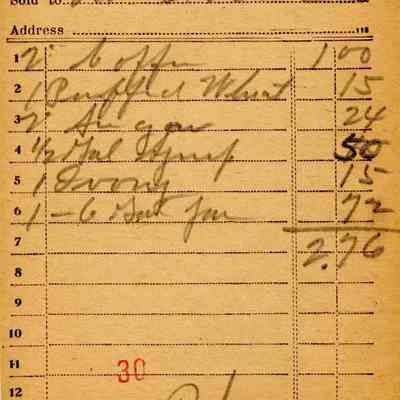 Sold to
Address
1 2 Coffee 1 00
2 1 Puffed Wheat 15
3 2 Sugar 24
4 1/2 Gal Syrup 50
5 1 Ivory 15
6 1 - 6 Gal Jar 72
7 2.76
8
9
10
11 30
12